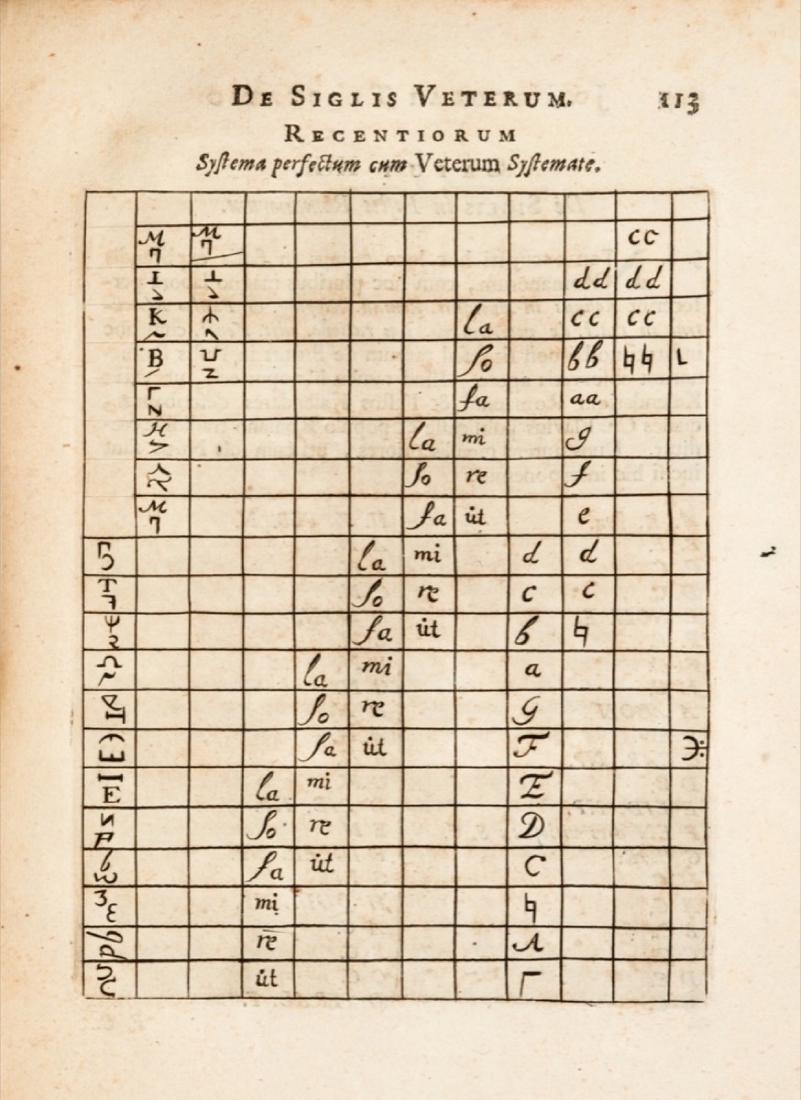 DE SIGLIS VETERUM. 113
RECENTIORUM
Systema perfectum cum Veterum Systemate.
M M cc
dd dd
K la cc cc
B so bb ♮♮
Γ N fa aa
la mi g
so re f
M fa ut e
la mi d d
so re c c
Ψ fa ut b ♮
la mi a
so re G
fa ut F
E la mi E
so re D
fa ut C
mi ♮
re A
ut Γ